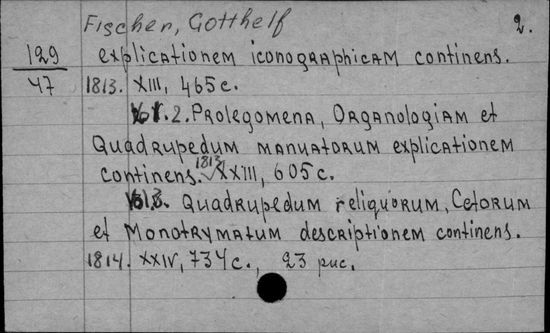 Fischer, Gotthelf
2.
129
47
explicationem iconographicam continens.
1813. XIII, 465c.
Vol. 2. Prolegomena, Organologiam et
Quadrupedum manuatorum explicationem
continens. 1813 XXIII, 605c.
Vol. 3. Quadrupedum reliquorum, Cetorum
et Monotrymatum descriptionem continens.
1814. XXIV, 734c., 23 рис.